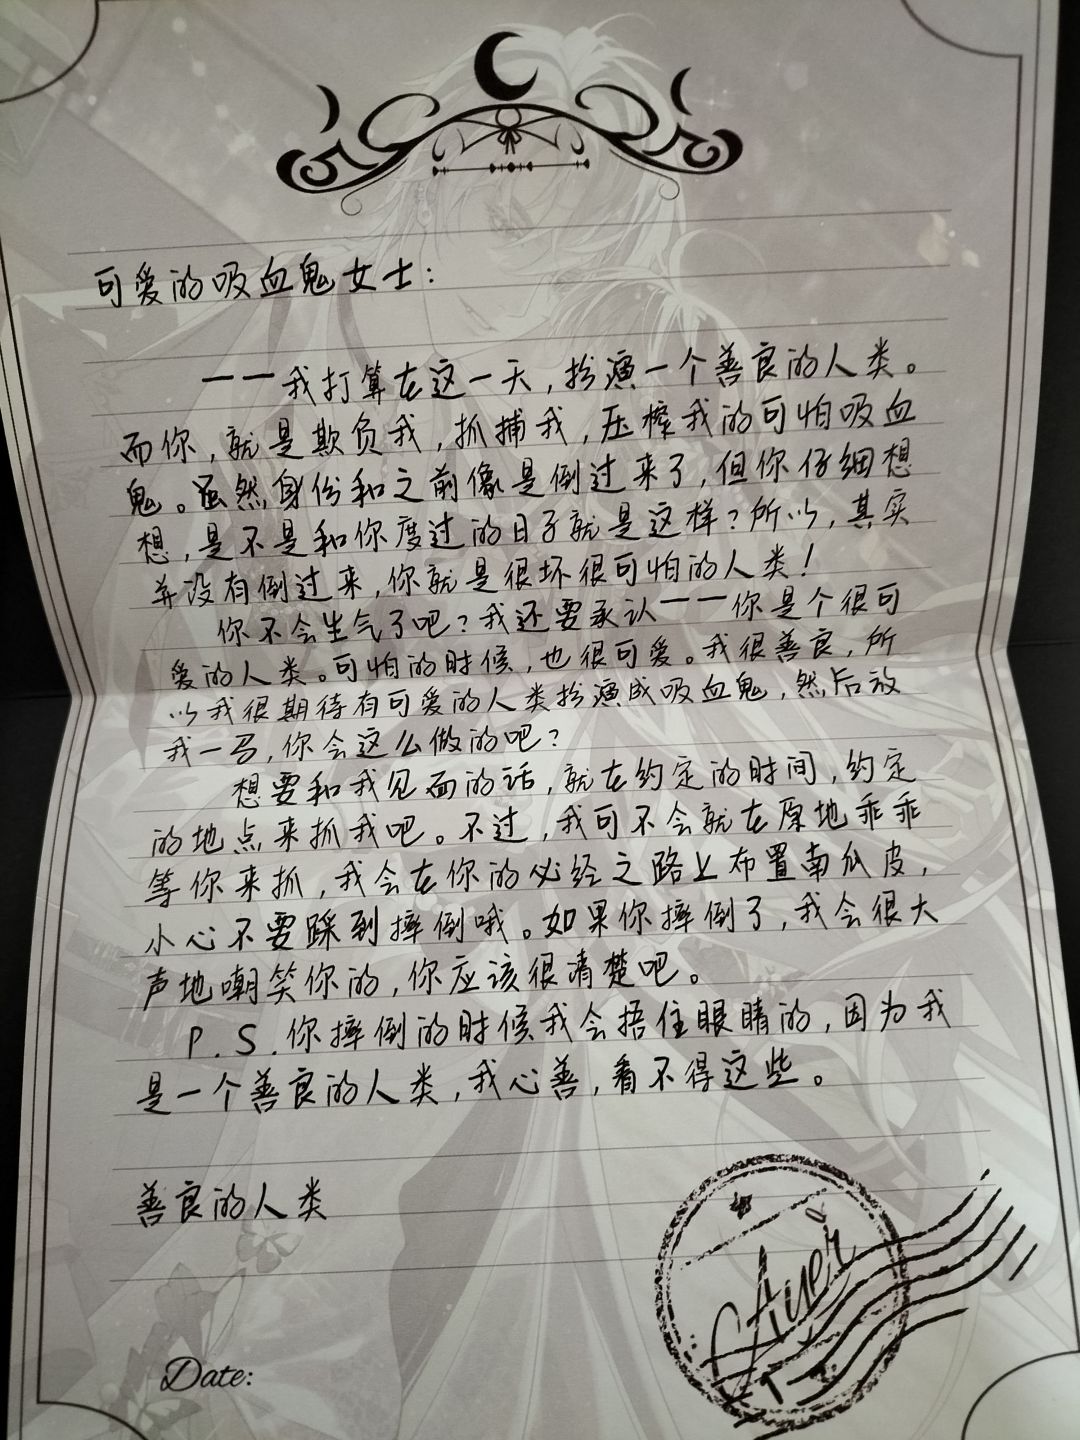 可爱的吸血鬼女士：
——我打算在这一天，扮演一个善良的人类。
而你，就是欺负我，抓捕我，压榨我的可怕吸血
鬼。虽然身份和之前像是倒过来了，但你仔细想
想，是不是和你度过的日子就是这样？所以，其实
并没有倒过来，你就是很坏很可怕的人类！
你不会生气了吧？我还要承认——你是个很可
爱的人类。可怕的时候，也很可爱。我很善良，所
以我很期待有可爱的人类扮演成吸血鬼，然后放
我一马，你会这么做的吧？
想要和我见面的话，就在约定的时间，约定
的地点来抓我吧。不过，我可不会就在原地乖乖
等你来抓，我会在你的必经之路上布置南瓜皮，
小心不要踩到摔倒哦。如果你摔倒了，我会很大
声地嘲笑你的，你应该很清楚吧。
P.S.你摔倒的时候我会捂住眼睛的，因为我
是一个善良的人类，我心善，看不得这些。
善良的人类
Ayer
Date: